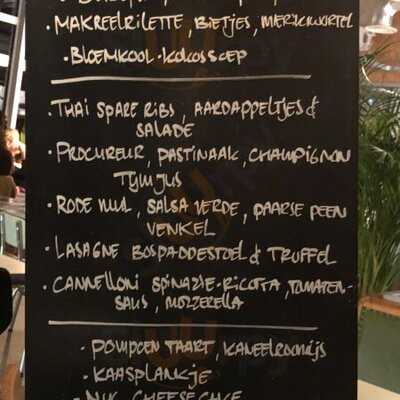 · MAKREELRILETTE, BIETJES, MIERIKWORTEL
· BLOEMKOOL-KOKOSSOEP
· THAI SPARE RIBS, AARDAPPELTJES &
SALADE
· PROCUREUR, PASTINAAK, CHAMPIGNON
TIJMJUS
· RODE MUL, SALSA VERDE, PAARSE PEEN
VENKEL
· LASAGNE BOSPADDESTOEL & TRUFFEL
· CANNELLONI SPINAZIE-RICOTTA, TOMATEN-
SAUS, MOZZERELLA
· POMPOEN TAART, KANEELROOMIJS
· KAASPLANKJE